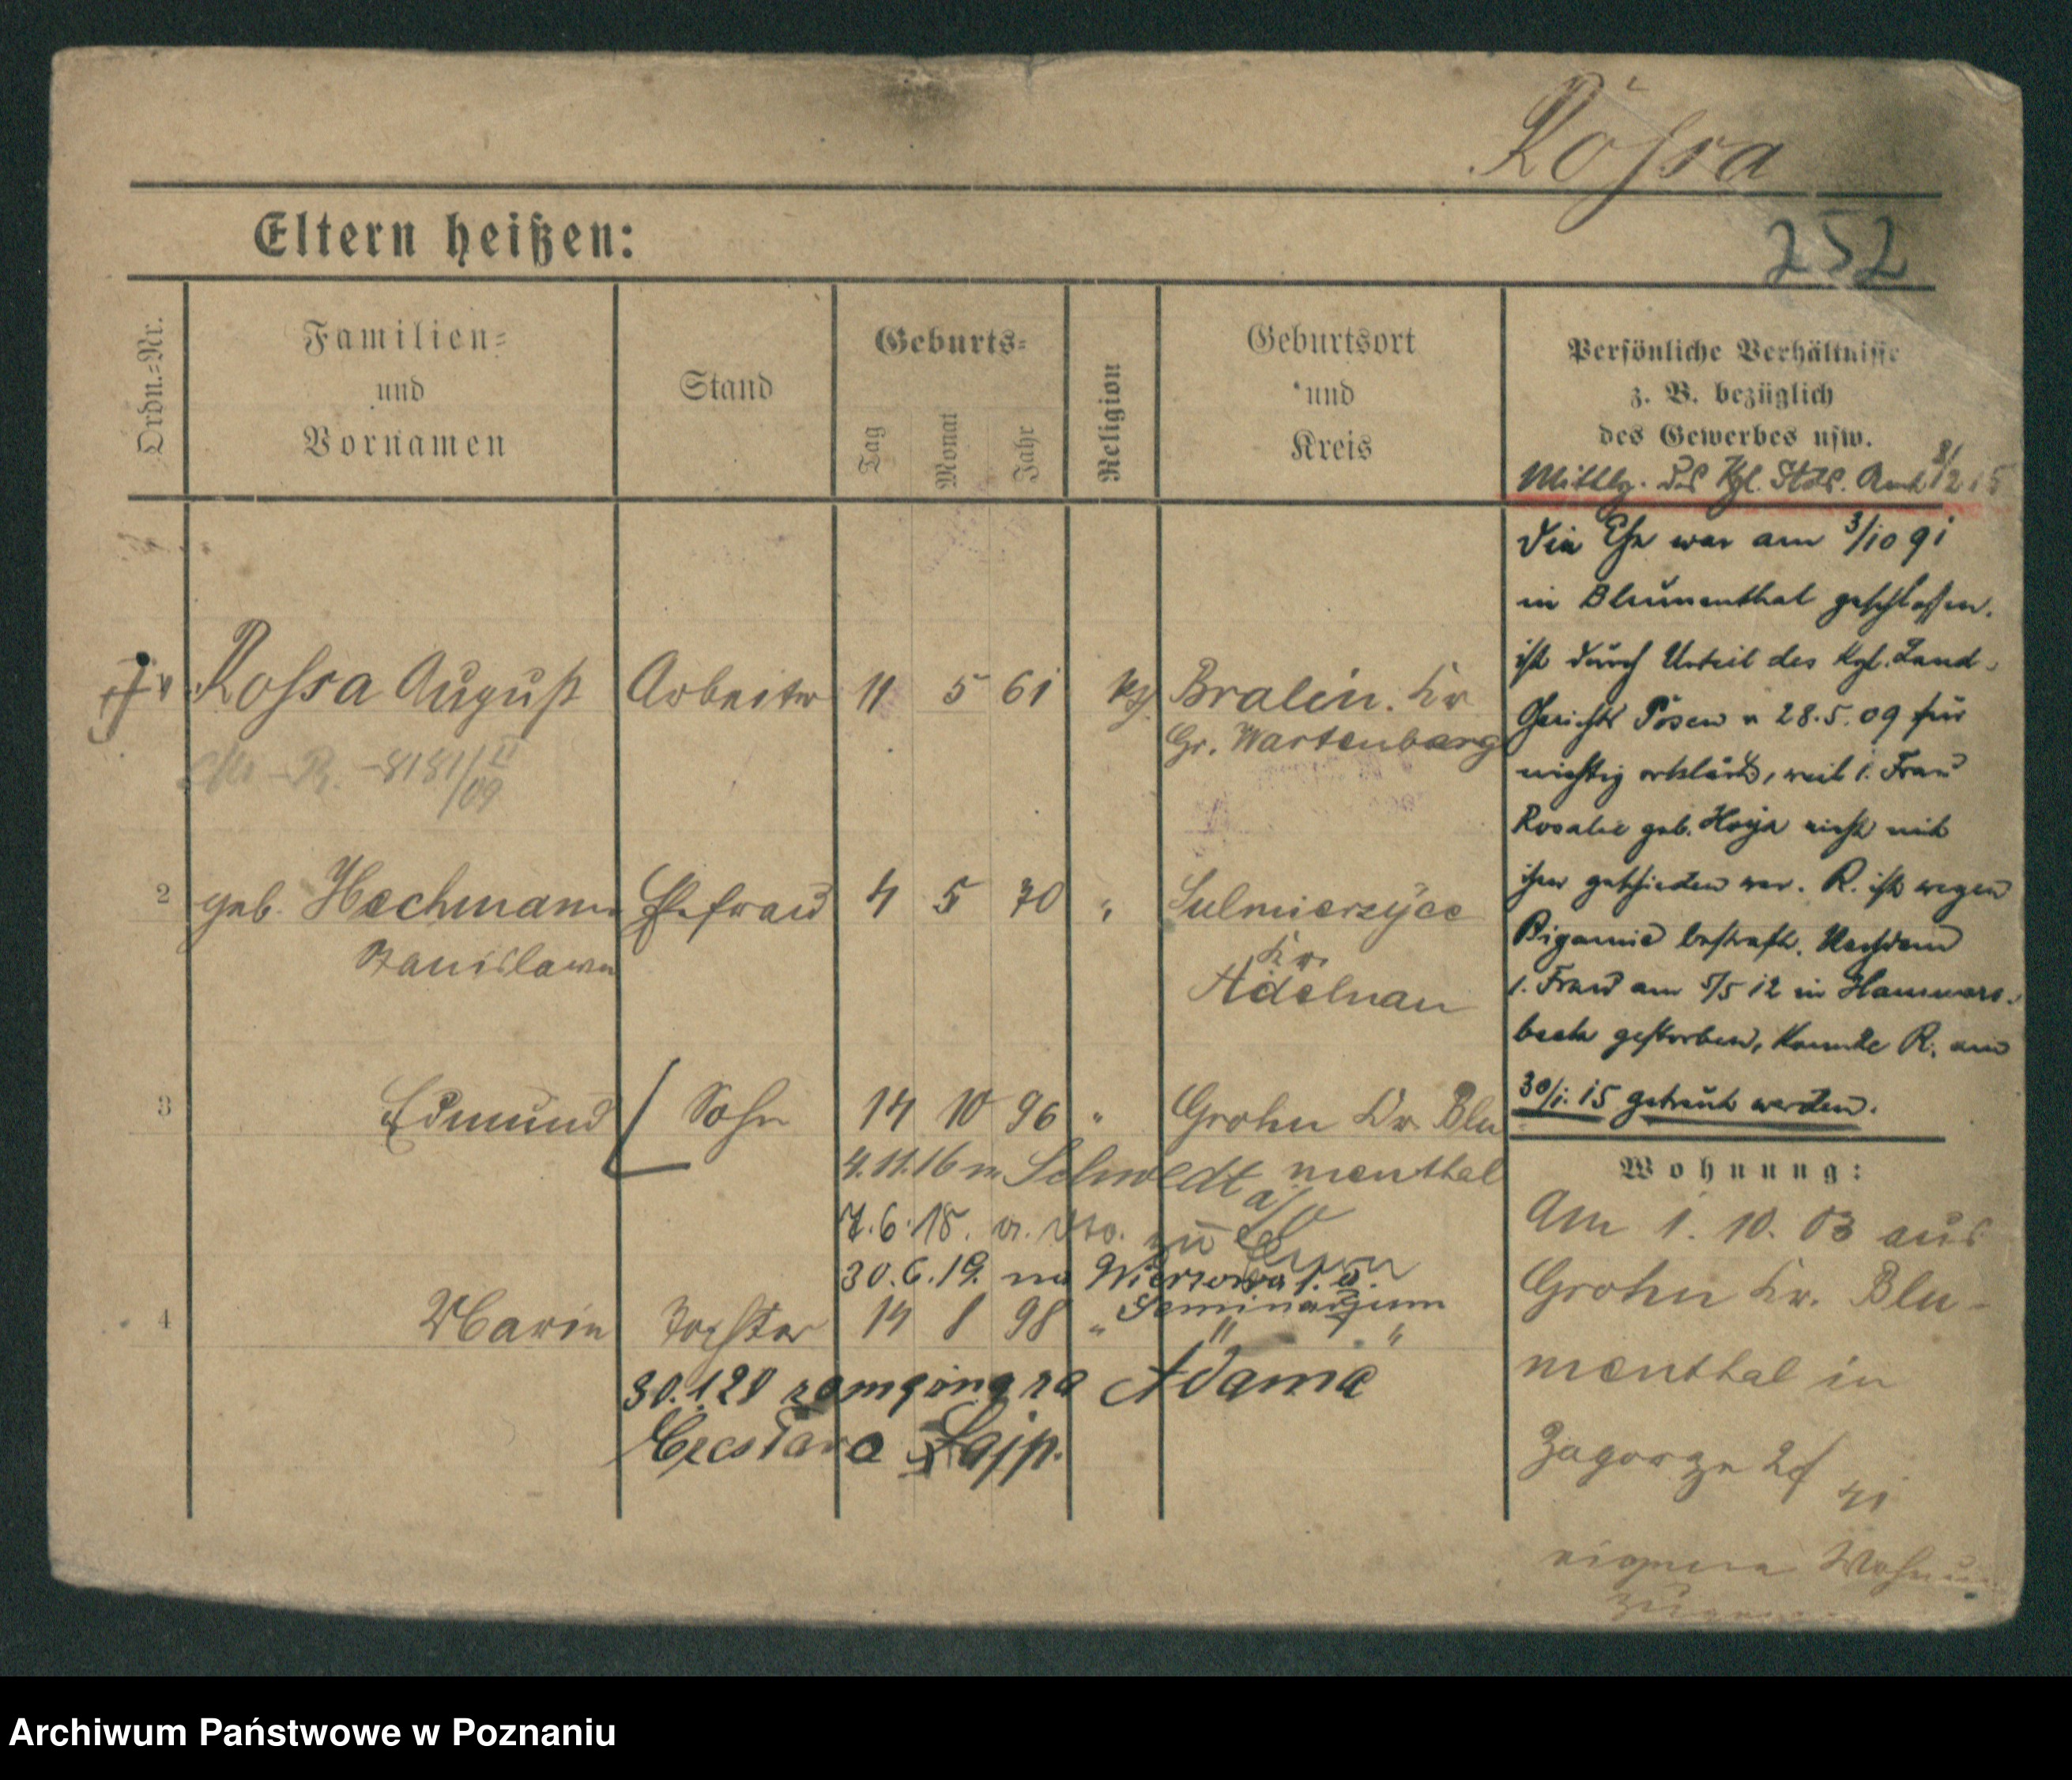 Rossa
Eltern heißen:
252
Ordn.=Nr.
Familien=
und
Vornamen
Stand
Geburts=
Tag
Monat
Jahr
Religion
Geburtsort
und
Kreis
Persönliche Verhältnisse
z. B. bezüglich
des Gewerbes usw.
Mittlg. des Kgl. Stds. Amt 8/12 15
Die Ehe war am 3/10 91
in Blumenthal geschlossen.
ist durch Urteil des Kgl. Land-
Gerichts Posen v 28.5.09 für
nichtig erklärt, weil 1. Frau
Rosalie geb. Hoyja nicht mit
ihm geschieden war. R. ist wegen
Bigamie bestraft. Nachdem
1. Frau am 5/5 12 in Hammers-
beck gestorben, konnte R. am
30/1. 15 getraut werden.
Rossa August Arbeiter 11 5 61 kg Bralin. Kr
Gr. Wartenberg
8181/II
09
2 geb. Hechmann Ehefrau 4 5 70 " Sulmierzyce
Stanislawa Kr.
Adelnau
3 Edmund Sohn 14 10 96 " Grohn Kr. Blu
menthal
4.11.16 n. Schwedt a/O
7.6.18. v. zu
30.6.19. na
Seminarjum
4 Marie Tochter 14 8 98 " " "
30.1.20 zamężna za Adama
Czesława
Wohnung:
Am 1. 10. 03 aus
Grohn Kr. Blu-
menthal in
Zagorze 2
eigene Wohnung